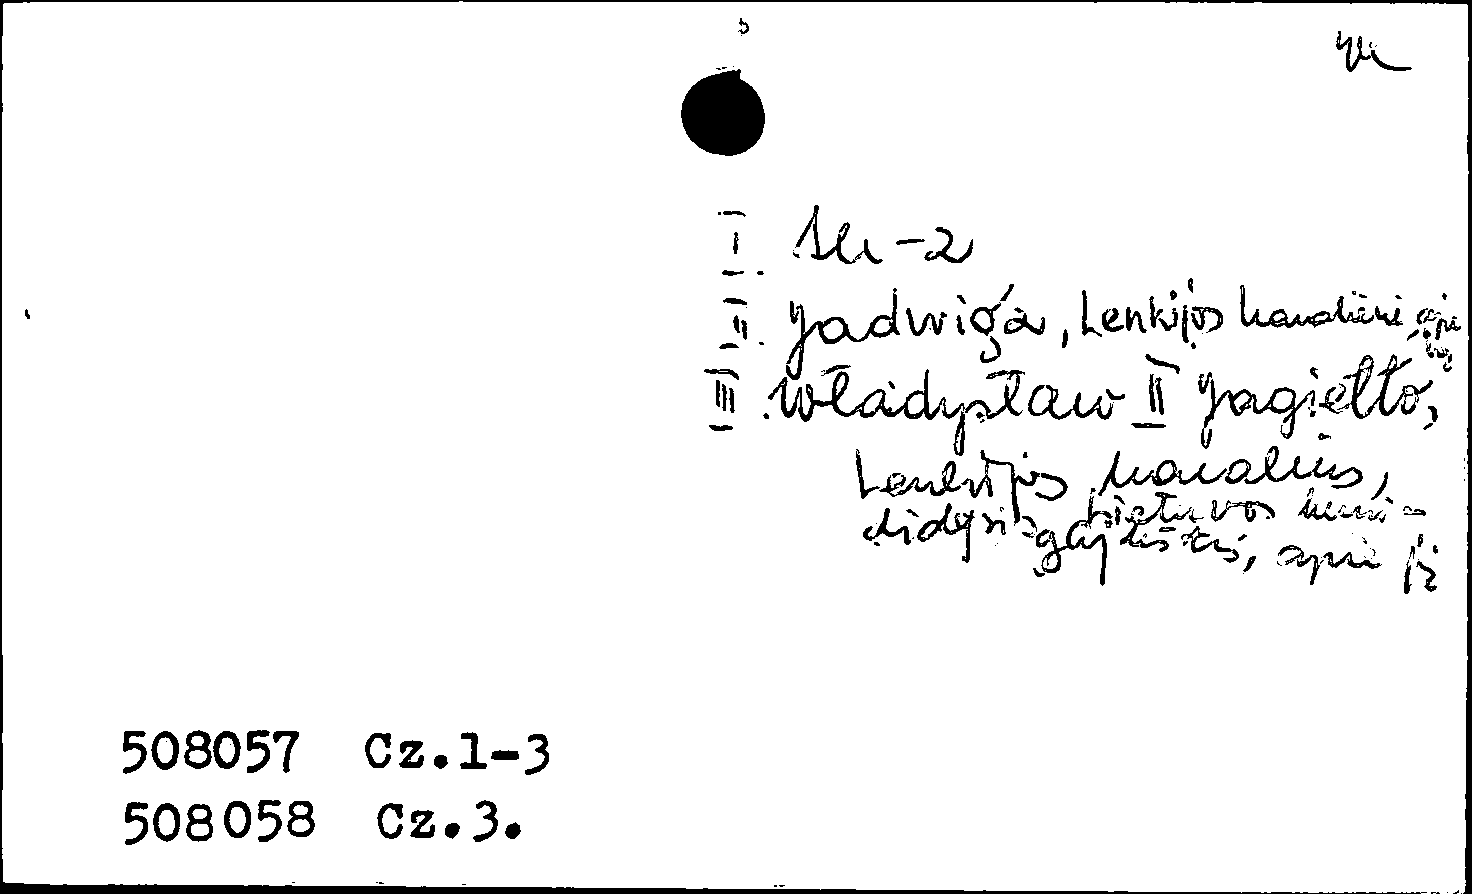 I. 1U-2
II. Jadwiga, Lenkijos karalienė apie
III. Władysław II Jagiełło,
Lenkijos karalius,
Lietuvos kuni-
gaikštis, apie jį
508057 Cz.1-3
508058 Cz.3.